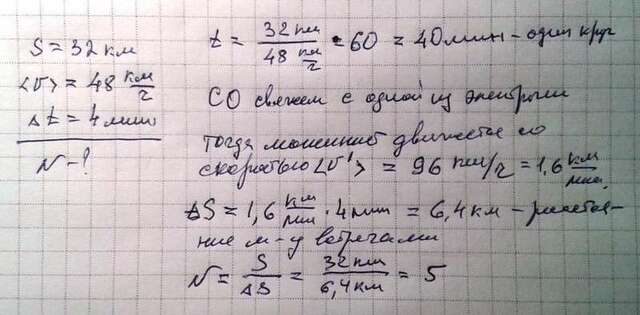 S = 32 км
<v> = 48 км/ч
Δt = 4 мин
N - ?
t = 32 км / 48 км/ч · 60 = 40 мин - один круг
СО свяжем с одной из электричек
тогда машинист движется со
скоростью <v'> = 96 км/ч = 1,6 км/мин
ΔS = 1,6 км/мин · 4 мин = 6,4 км - расстоя-
ние м-у встречами
N = S / ΔS = 32 км / 6,4 км = 5